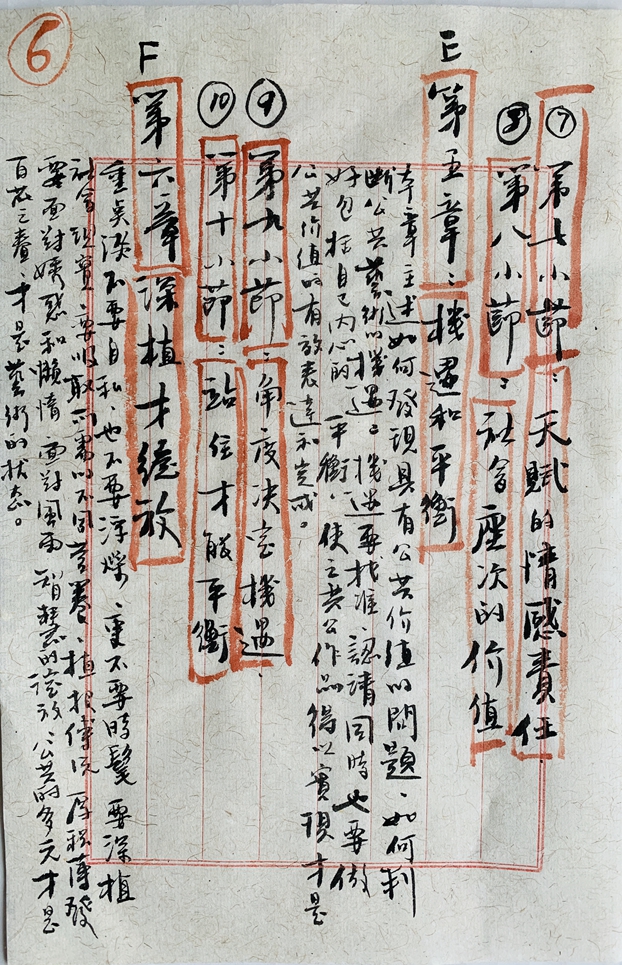 6
⑦ 第七小節：天賦的情感責任
⑧ 第八小節：社會座次的价值
E 第五章：機遇和平衡
本章主述如何發現具有公共价值的問題、如何判
斷公共藝術的機遇。機遇要找准、認清同時也要做
好包括自己内心的平衡。使之共公作品得以實現才是
公共价值的有效表達和完成。
⑨ 第九小節：角度决定機遇
⑩ 第十小節：站住才能平衡
F 第六章 深植才綻放
重矣淡不要自私、也不要浮燥、更不要時髦 要深植
社會現實、要吸取所需的不同营養、植根傳统 厚积薄發
要面對誘惑和懒惰 面對風雨 智慧的绽放、公共的多元才是
百花之春、才是藝術的狀态。